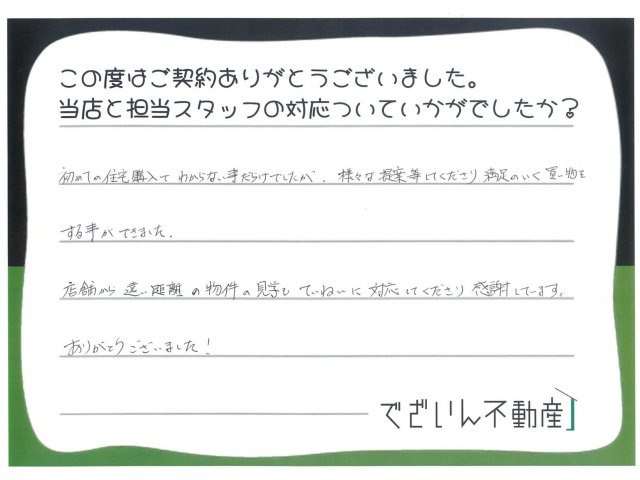 この度はご契約ありがとうございました。
当店と担当スタッフの対応ついていかがでしたか？
初めての住宅購入で わからない事だらけでしたが、様々な提案等してくださり 満足のいく 買い物を
する事ができました。
店舗から 遠い距離 の物件の見学も ていねいに 対応してくださり 感謝しています。
ありがとうございました！
でざいん不動産